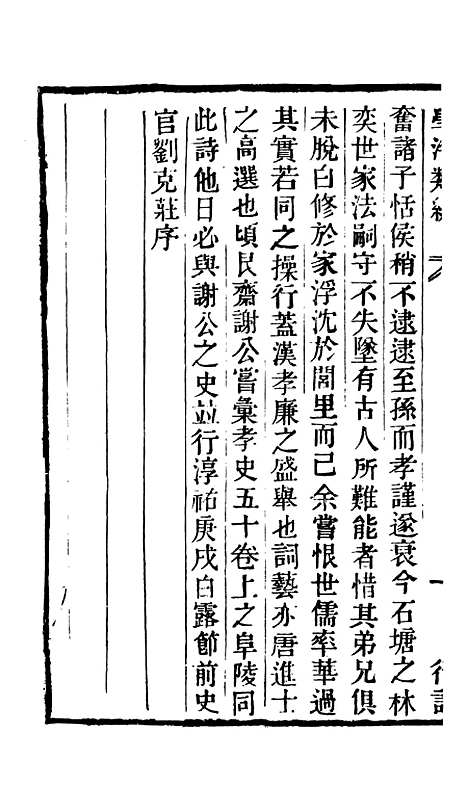 學海類編
奮諸子恬侯稍不逮逮至孫而孝謹遂衰今石塘之林
奕世家法嗣守不失墜有古人所難能者惜其弟兄俱
未脫白修於家浮沈於閭里而已余嘗恨世儒率華過
其實若同之操行蓋漢孝廉之盛舉也詞藝亦唐進士
之高選也頃艮齋謝公嘗彙孝史五十卷上之阜陵同
此詩他日必與謝公之史並行淳祐庚戌白露節前史
官劉克莊序